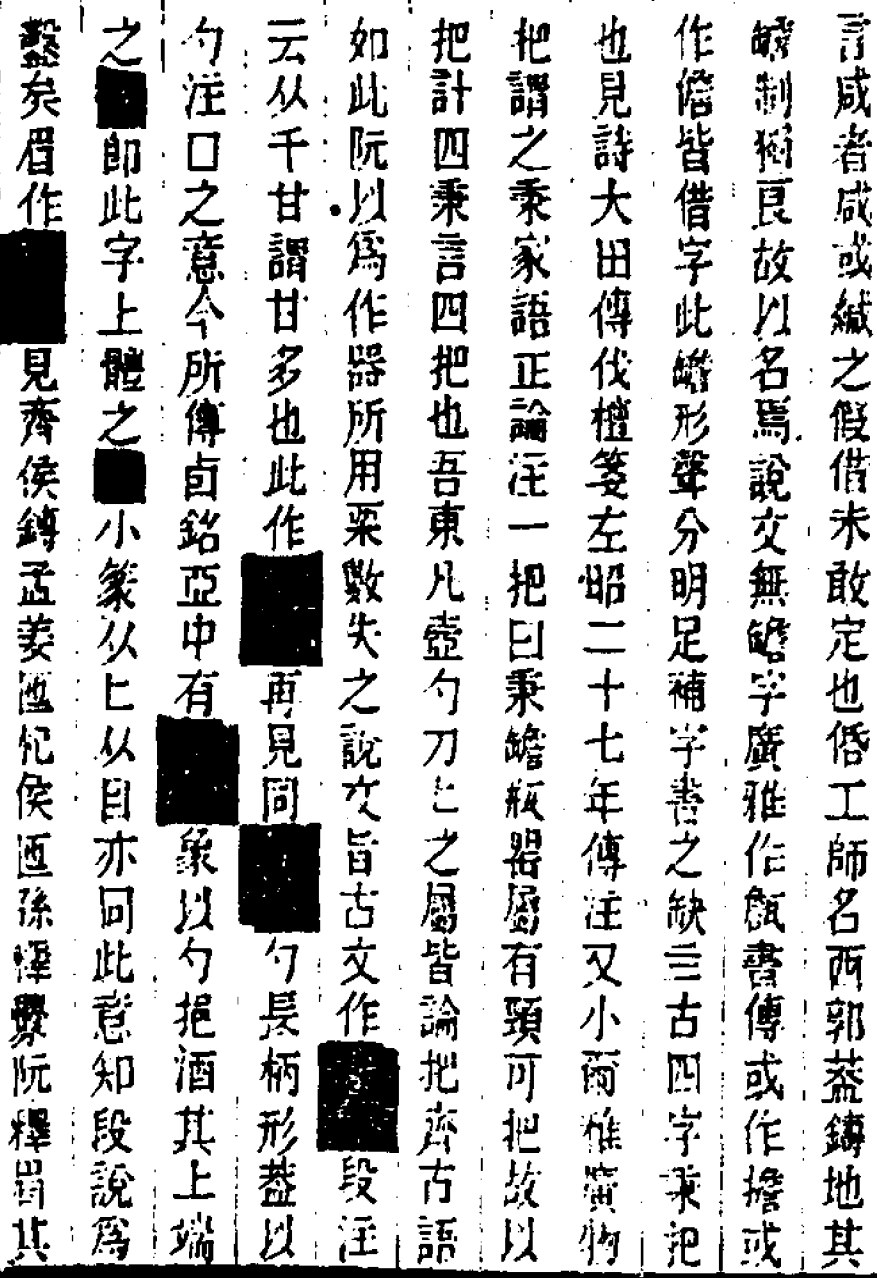 言咸者咸或緘之假借未敢定也偆工師名西郭葢鑄地其
罎制獨良故以名焉說文無罎字廣雅作甔書傳或作擔或
作儋皆借字此罎形聲分明足補字書之缺亖古四字秉把
也見詩大田傳伐檀箋左昭二十七年傳注又小爾雅廣物
把謂之秉家語正論注一把曰秉罎瓶器屬有頸可把故以
把計四秉言四把也吾東凡壺勺刀匕之屬皆論把齊古語
如此阮以爲作器所用粟數失之說文旨古文作段注
云从千甘謂甘多也此作再見同勺長柄形葢以
勺注口之意今所傳卣銘亞中有象以勺挹酒其上端
之卽此字上體之小篆从匕从目亦同此意知段說爲
鑿矣眉作見齊侯鎛孟姜匜杞侯匜孫釋釁阮釋眉其